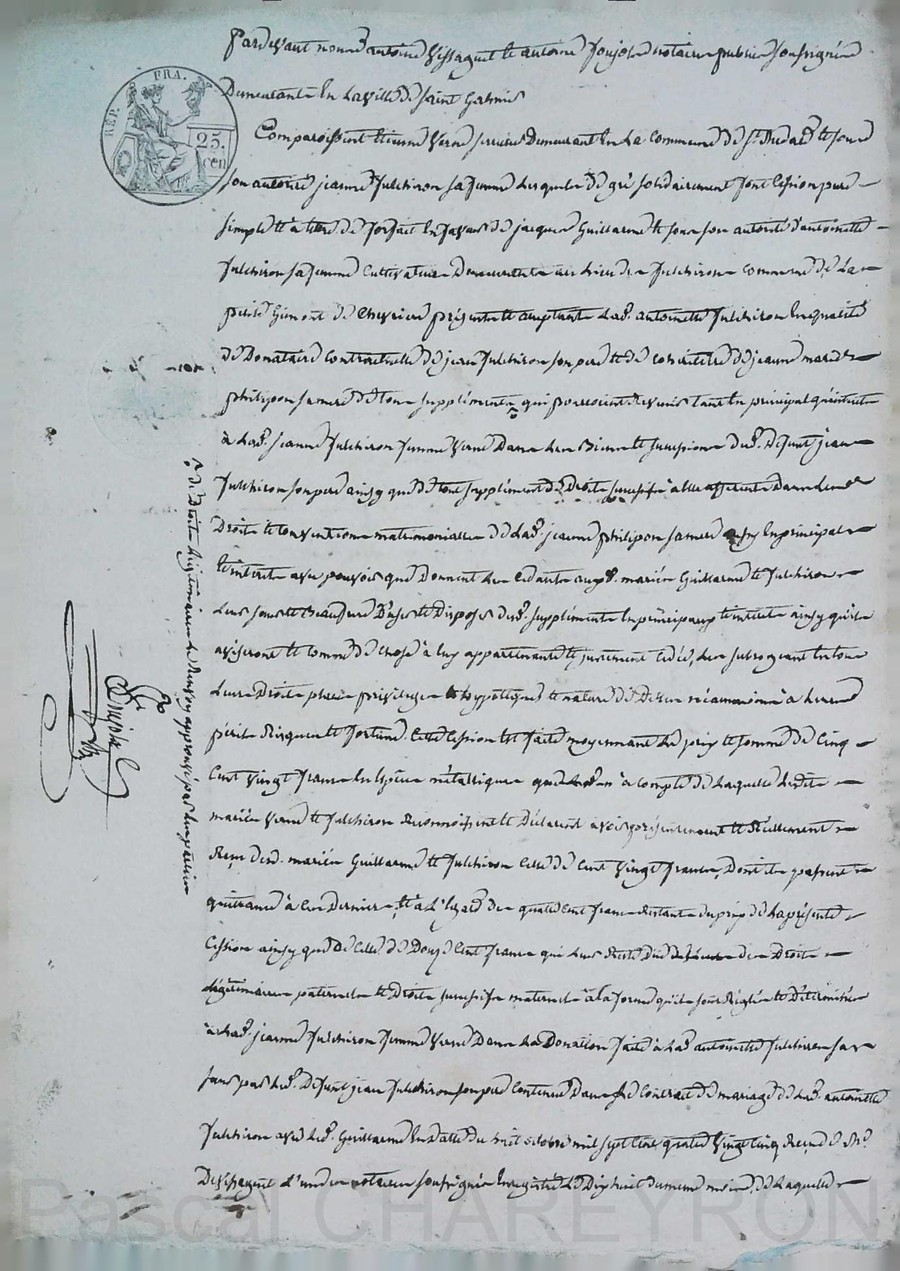 Pardevant nous antoine Vissaguet et antoine Poujol notaires publics soussignés
Demeurants En La ville de saint Galmier
REP. FRA.
25.
cen
Comparoissent Etienne Verne Demeurant En La Commune de St. Medard et sous
son autorité jeanne fulchiron sa femme Lesquels de gré solidairement font Cession pure
simple et à titre de forfait En faveur de jacques Guillarme et sous son autorité d'antoinette
fulchiron sa femme Cultivateurs Demeurants au Lieu de fulchiron commune de La
Gimont de Chevrieres présents et acceptants Lad. antoinette fulchiron En qualité
de Donataire Contractuelle de jean fulchiron son pere et de de jeanne marie
philipon sa mere de tous suppléments qui pourroient revenir tant En principal qu'interets
à Lad. jeanne fulchiron femme Verne Dans Les Biens et succession dud. Defunt jean
fulchiron son pere ainsy que de tout supplément de Droits successifs à elle afferents Dans Les
Droits et Conventions matrimoniales de Lad. jeanne philipon sa mere En principal
et interets avec pouvoir que Donnent Les Cedants auxd. mariés Guillarme et fulchiron
D'user et Disposer desd. suppléments En principaux et interets ainsy qu'ils
aviseront et comme de chose à Eux appartenante et justement Cedée, Les subrogeant En tous
Leurs Droits place privileges et hypotèques et nature de Dettes néanmoins à Leurs
périls Risques et fortune. Cette Cession est faite moyennant Le prix et somme de Cinq
Cent Vingt francs En Espèces métalliques à compte de Laquelle Lesdits
mariés Verne et fulchiron Reconnoissent et Déclarent avoir présentement et Réellement
Reçu desd. mariés Guillarme et fulchiron Celle de Cent Vingt francs, Dont ils passent
quittance à Ces Derniers, et à L'Egard des quatre Cent francs Restants du prix de La présente
Cession ainsy que de Celle de Douze Cent francs qui Leurs Reste Due de Leurs Droits
Légitimaires paternels et Droits successifs maternels à La forme qu'ils sont Réglés et Déterminés
à Lad. jeanne fulchiron femme Verne Dans La Donation faite à Lad. antoinette fulchiron sa
sœur par Led. Defunt jean fulchiron son pere Contenue Dans Le Contrat de mariage de Lad. antoinette
fulchiron avec Led. Guillarme En Datte du huit octobre mil sept Cent quatre Vingt Cinq Reçu de Me.
Devissaguet L'un des notaires soussignés Enregistré Le Dix huit du meme mois, de Laquelle
de Droits Légitimaires approuvé par Les parties
Pascal CHAREYRON